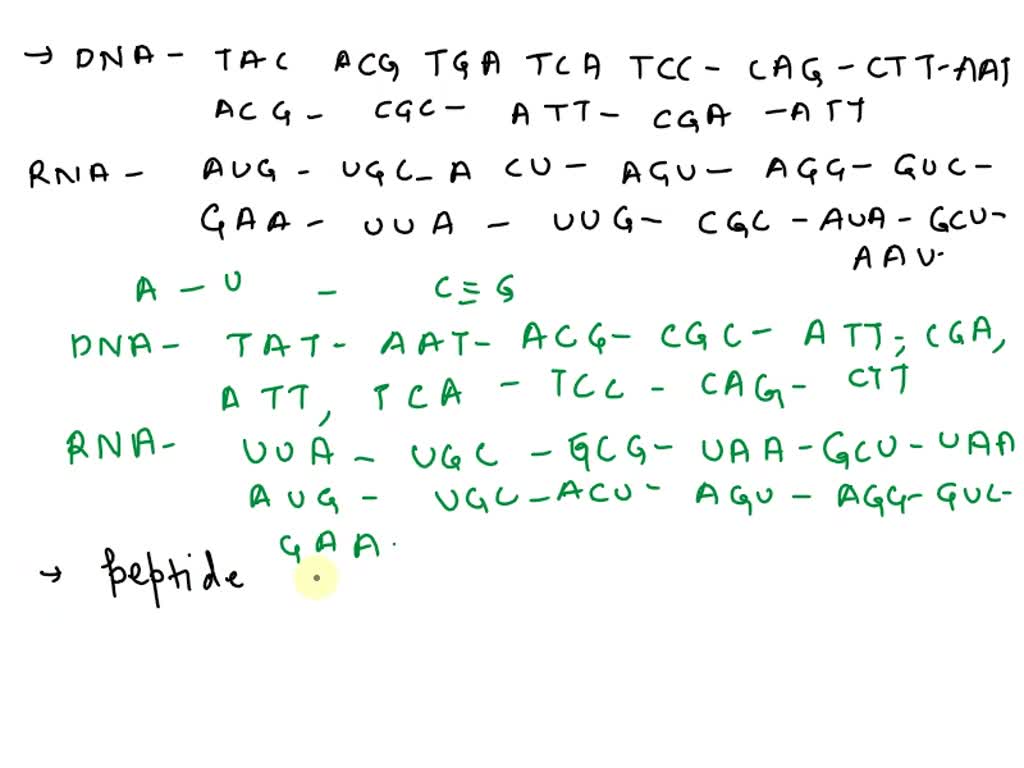 → DNA - TAC ACG TGA TCA TCC - CAG - CTT - AAT
ACG - CGC - ATT - CGA - ATT
RNA - AUG - UGC - A CU - AGU - AGG - GUC -
GAA - UUA - UUG - CGC - AUA - GCU -
AAU.
A - U - C ≡ G
DNA - TAT - AAT - ACG - CGC - ATT, CGA,
ATT, TCA - TCC - CAG - CTT
RNA - UUA - UGC - GCG - UAA - GCU - UAA
AUG - UGC - ACU - AGU - AGG - GUC -
GAA.
→ peptide